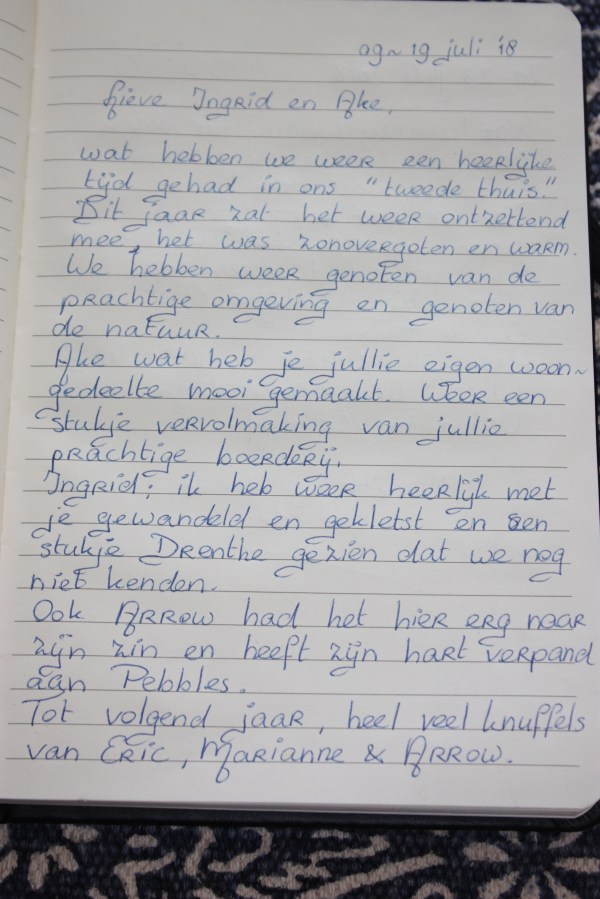 09~19 juli '18
Lieve Ingrid en Ake,
wat hebben we weer een heerlijke
tijd gehad in ons "tweede thuis."
Dit jaar zat het weer ontzettend
mee, het was zonovergoten en warm.
We hebben weer genoten van de
prachtige omgeving en genoten van
de natuur.
Ake wat heb je jullie eigen woon~
gedeelte mooi gemaakt. Weer een
stukje vervolmaking van jullie
prachtige boerderij.
Ingrid; ik heb weer heerlijk met
je gewandeld en gekletst en een
stukje Drenthe gezien dat we nog
niet kenden.
Ook Arrow had het hier erg naar
zijn zin en heeft zijn hart verpand
aan Pebbles.
Tot volgend jaar, heel veel knuffels
van Eric, Marianne & Arrow.